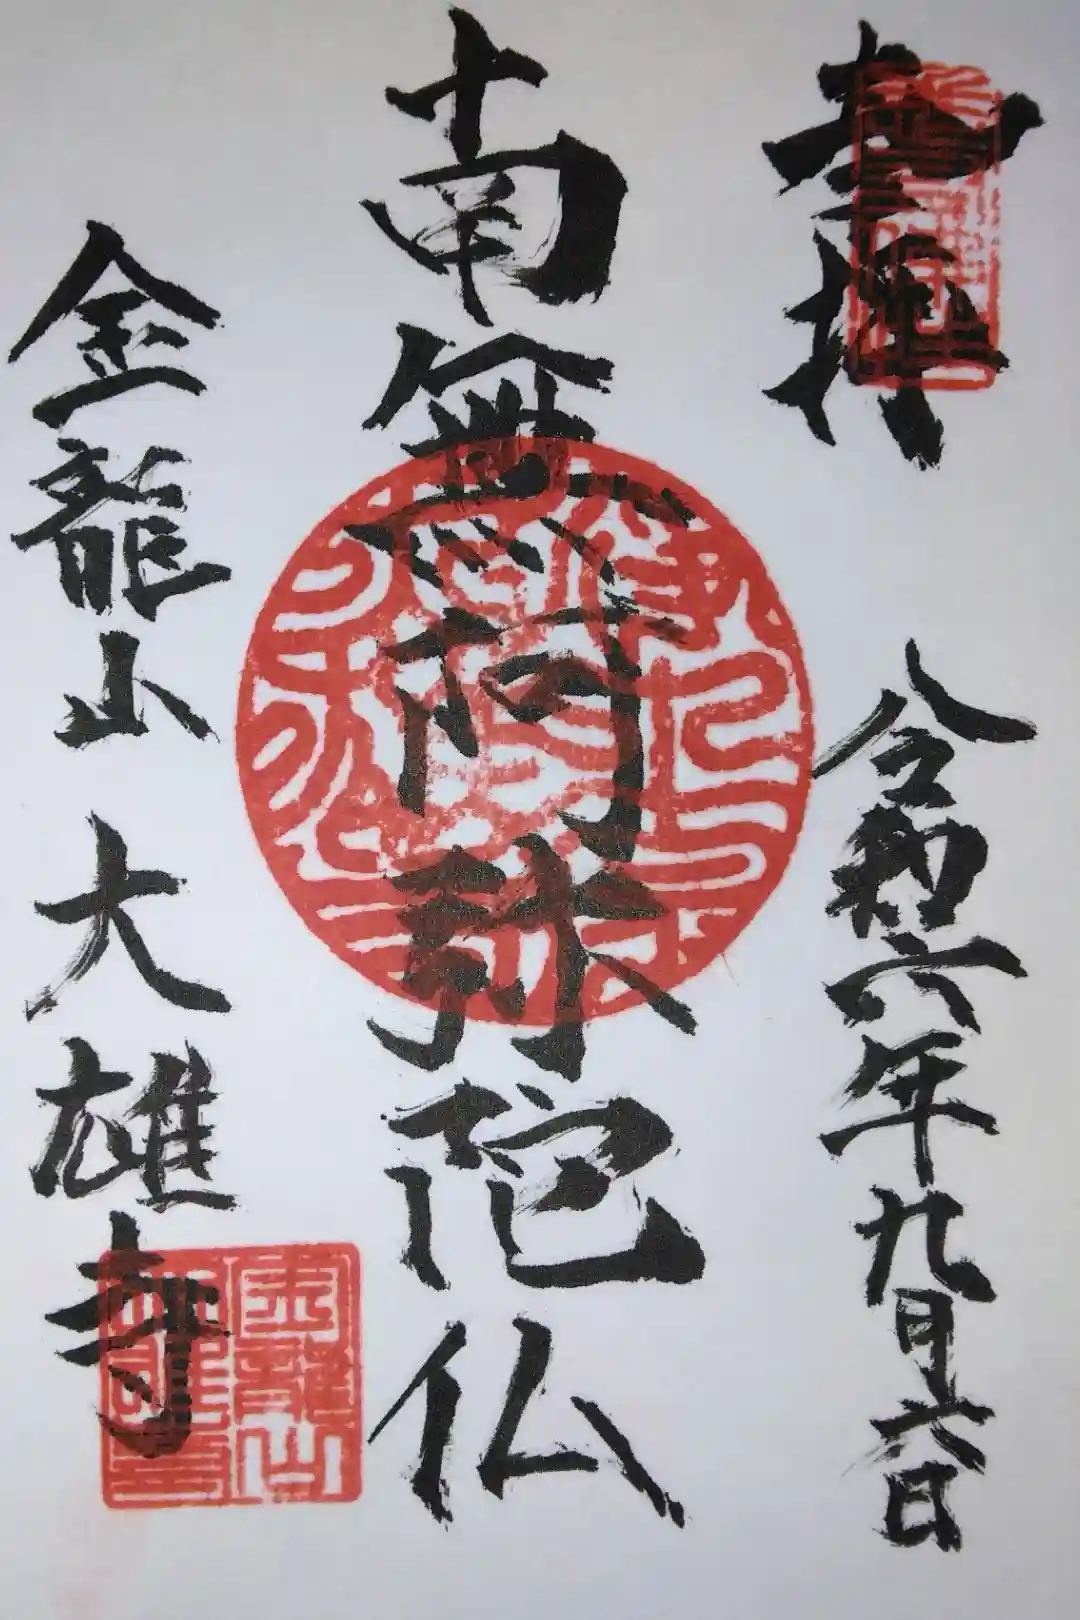 奉拝
令和六年九月六日
南無阿弥陀仏
金龍山 大雄寺
金龍山
大雄寺